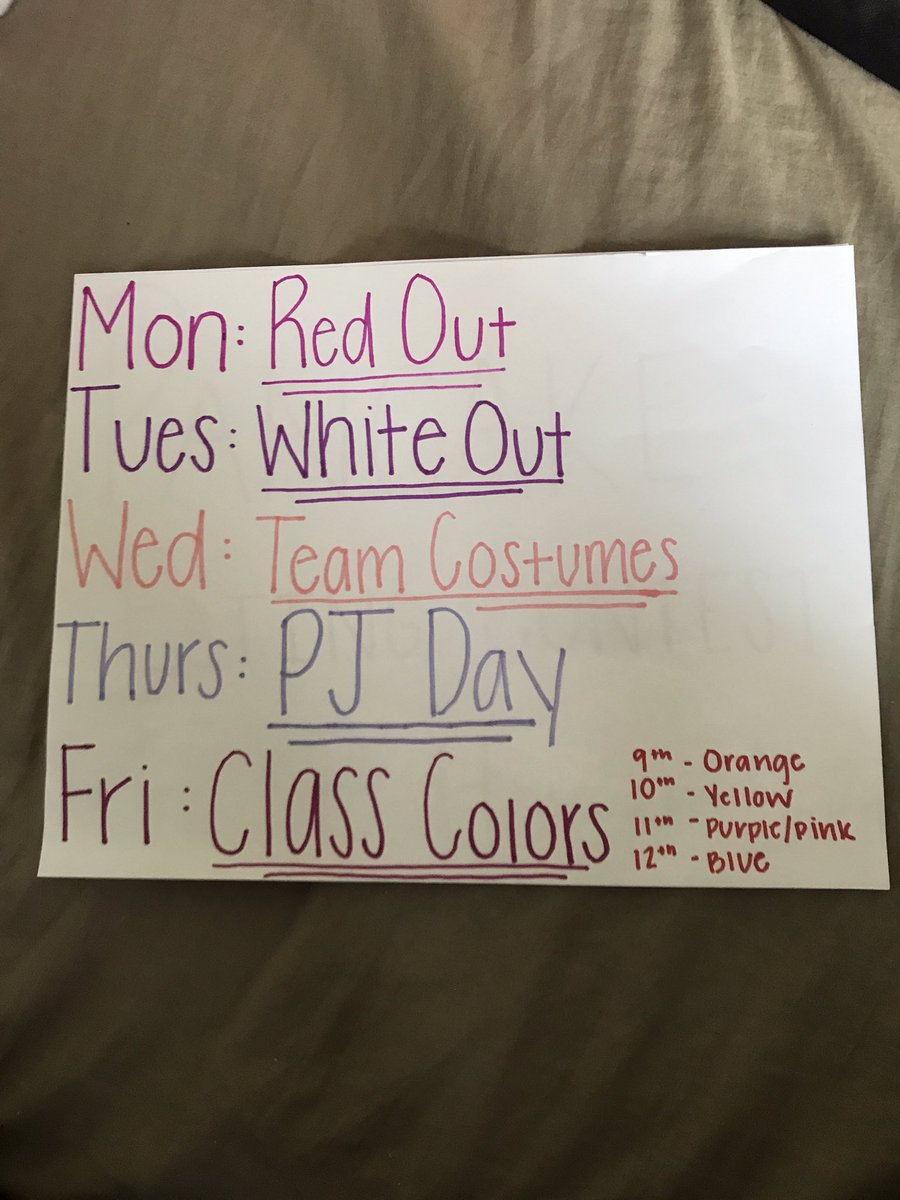 Mon: Red Out
Tues: White Out
Wed: Team Costumes
Thurs: PJ Day
Fri: Class Colors
9th - Orange
10th - Yellow
11th - Purple/pink
12th - Blue